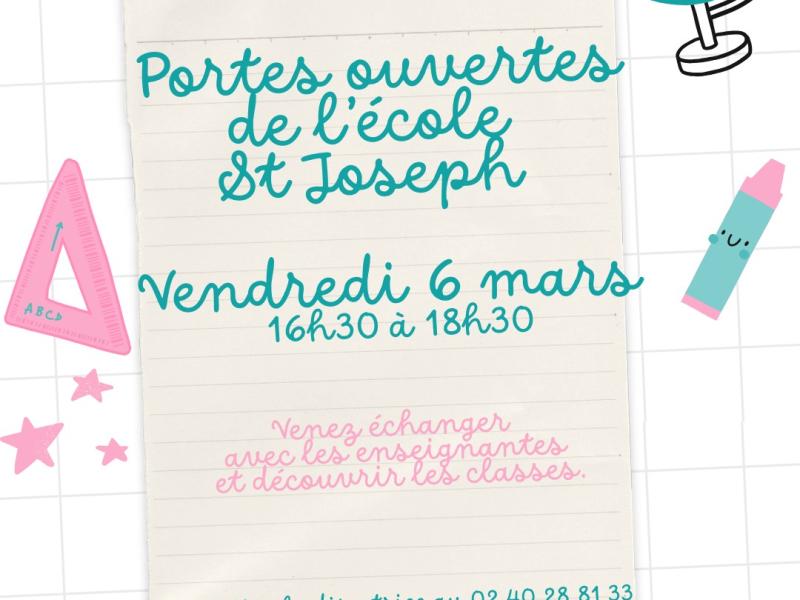 Portes ouvertes
de l'école
St Joseph
Vendredi 6 mars
16h30 à 18h30
Venez échanger
avec les enseignantes
et découvrir les classes.
ABCD
au 02 40 28 81 33